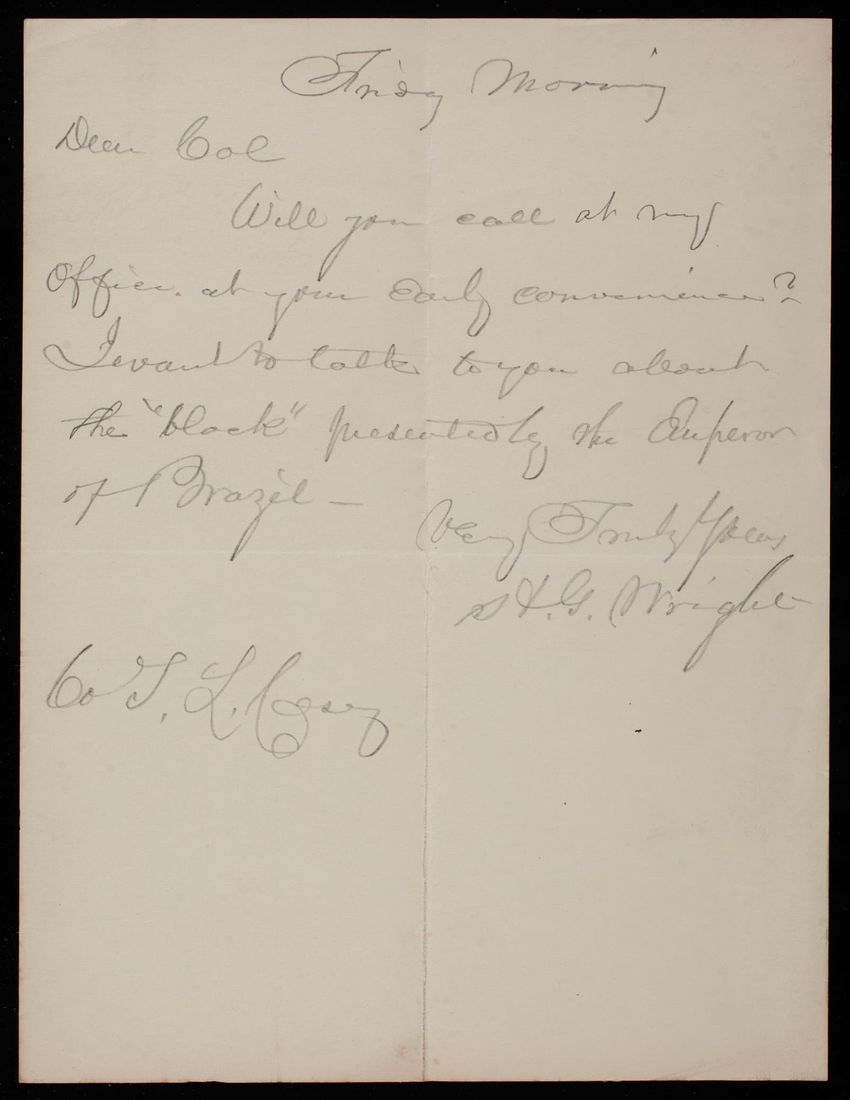 Friday Morning
Dear Col
Will you call at my
Office. at your early convenience?
I want to talk to you about
the "block" presented by the Emperor
of Brazil —
Very Truly Yours
H. G. Wright
Co T. L. Casey